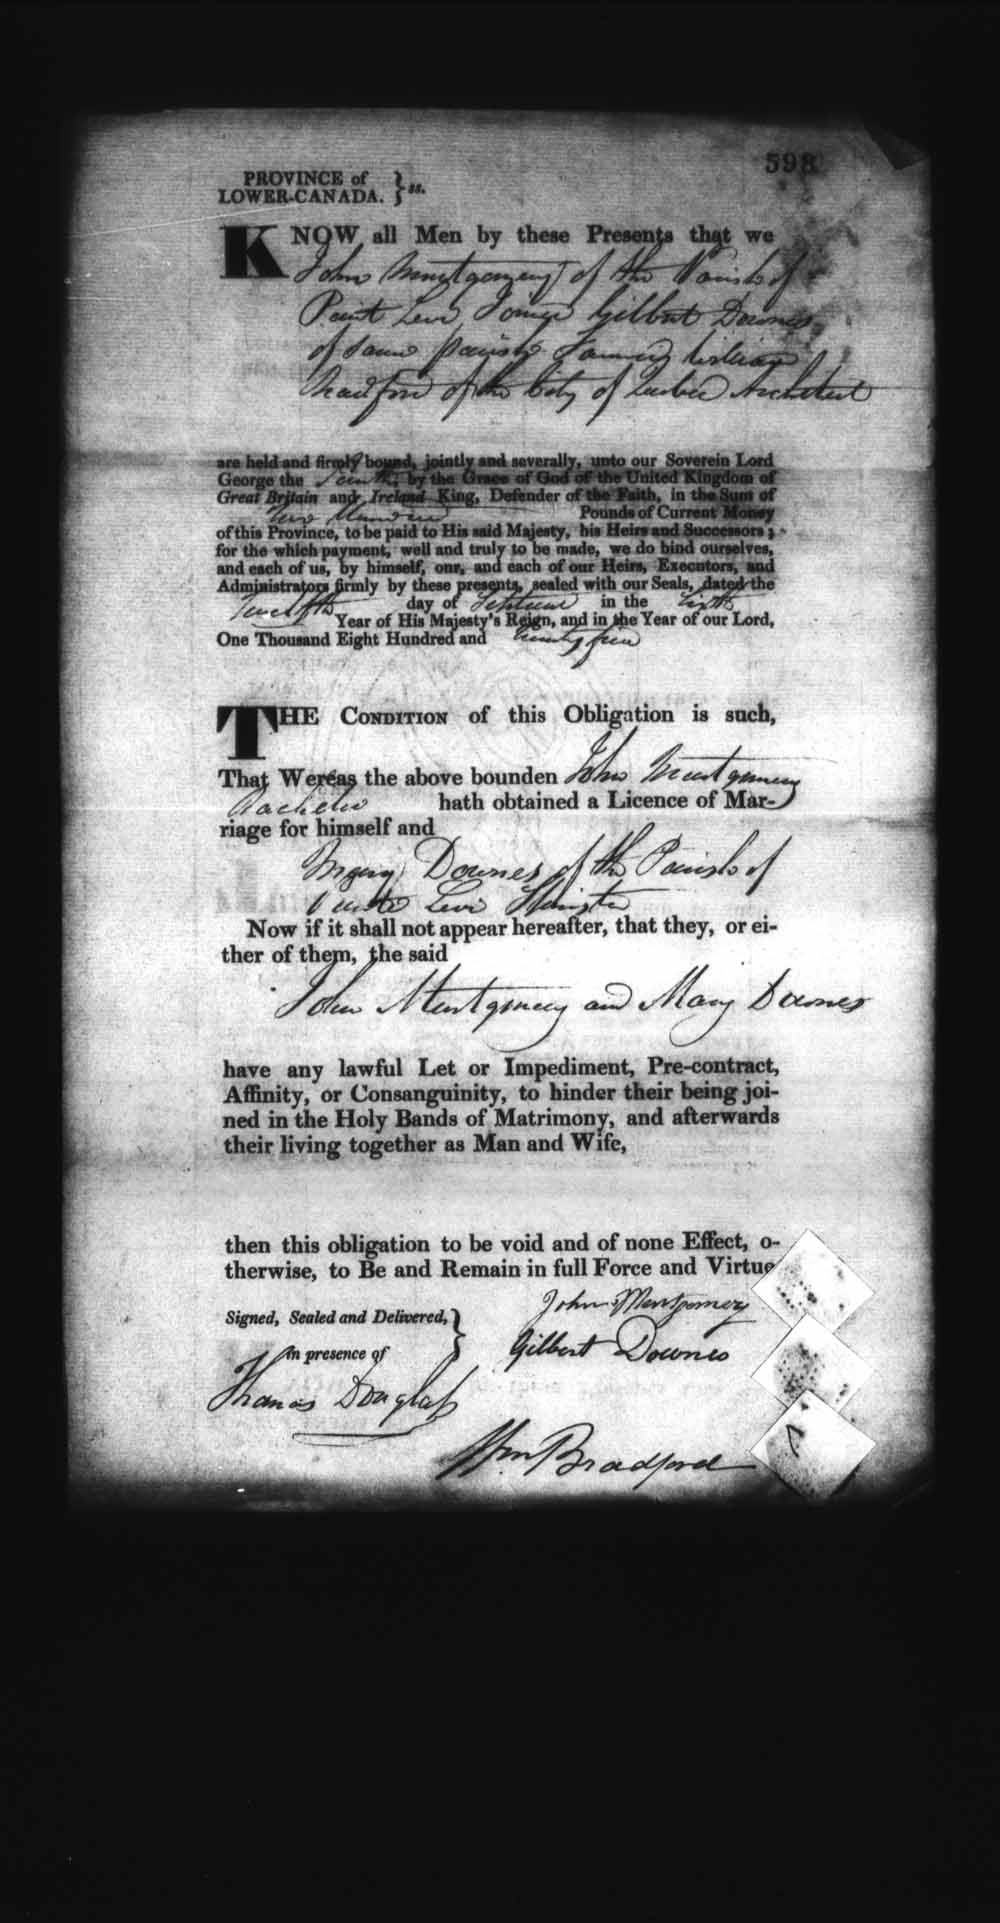 598
PROVINCE of
LOWER-CANADA. } ss.
KNOW all Men by these Presents that we
John Montgomery of the Parish of
Point Levi Gilbert Downes
of same parish William
Bradford of the City of Quebec Architect
are held and firmly bound, jointly and severally, unto our Soverein Lord
George the Fourth, by the Grace of God of the United Kingdom of
Great Britain and Ireland King, Defender of the Faith, in the Sum of
Two Hundred Pounds of Current Money
of this Province, to be paid to His said Majesty, his Heirs and Successors;
for the which payment, well and truly to be made, we do bind ourselves,
and each of us, by himself, our, and each of our Heirs, Executors, and
Administrators firmly by these presents, sealed with our Seals, dated the
Twelfth day of in the Sixth
Year of His Majesty's Reign, and in the Year of our Lord,
One Thousand Eight Hundred and twenty five
THE CONDITION of this Obligation is such,
That Wereas the above bounden John Montgomery
Bachelor hath obtained a Licence of Mar-
riage for himself and
Mary Downes of the Parish of
Pointe Levi Spinster
Now if it shall not appear hereafter, that they, or ei-
ther of them, the said
John Montgomery and Mary Downes
have any lawful Let or Impediment, Pre-contract,
Affinity, or Consanguinity, to hinder their being joi-
ned in the Holy Bands of Matrimony, and afterwards
their living together as Man and Wife,
then this obligation to be void and of none Effect, o-
therwise, to Be and Remain in full Force and Virtue
Signed, Sealed and Delivered, }
in presence of
John Montgomery
Gilbert Downes
Thomas Douglass
Wm Bradford